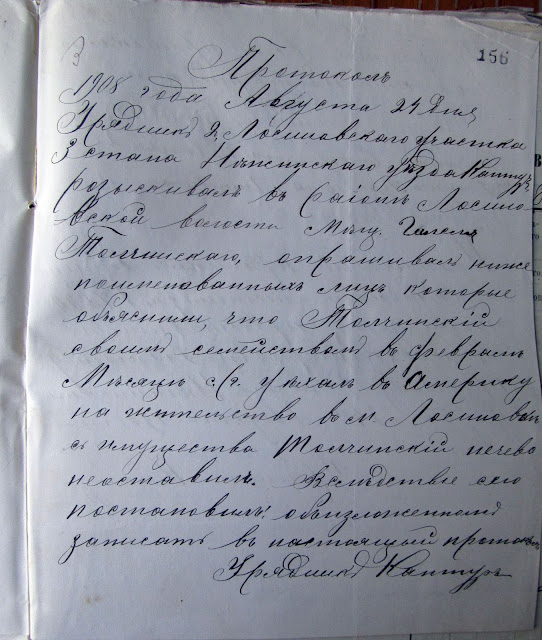 3
156
Протоколъ
1908 года Августа 24 дня
Урядникъ 2, Лосиновскаго участка
3 стана Нѣжинскаго уѣзда Кантуръ
розыскивалъ въ раіонѣ Лосино-
вской волости Мѣщ.
Толчинскаго, опрашивалъ ниже
поименованныхъ лицъ которые
объяснили, что Толчинскій
своимъ семействомъ въ февралѣ
Мѣсяцѣ с/г. уѣхалъ въ Америку
на жительство въ м. Лосиновкѣ
съ имущества Толчинскій нечево
неоставилъ. Вслѣдствіе сего
постановилъ: объизложенномъ
записать въ настоящій протоколъ
Урядникъ Кантуръ